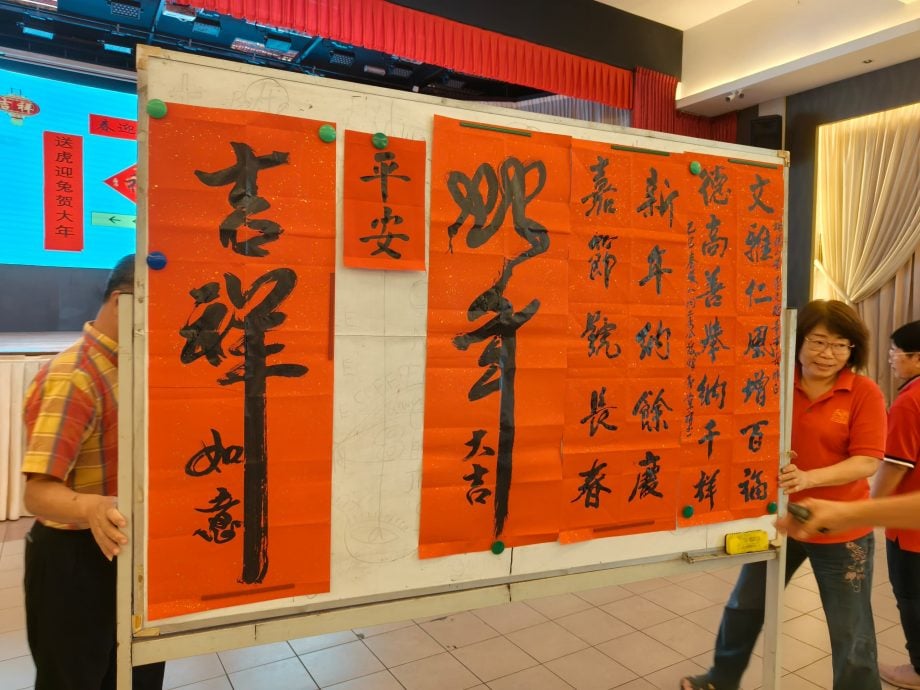 吉祥
送虎迎兔贺大年
文雅仁風增百福
德高善举納千祥
新年納餘慶
嘉節號長春
年
大吉
平安
吉祥
如意